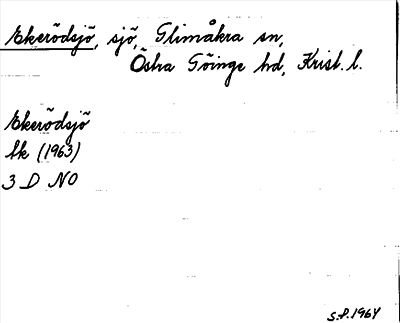 Ekerödsjö, sjö, Glimåkra sn,
Östra Göinge hd, Krist. l.
Ekerödsjö
Ek (1963)
3 D NO
S.P. 1964